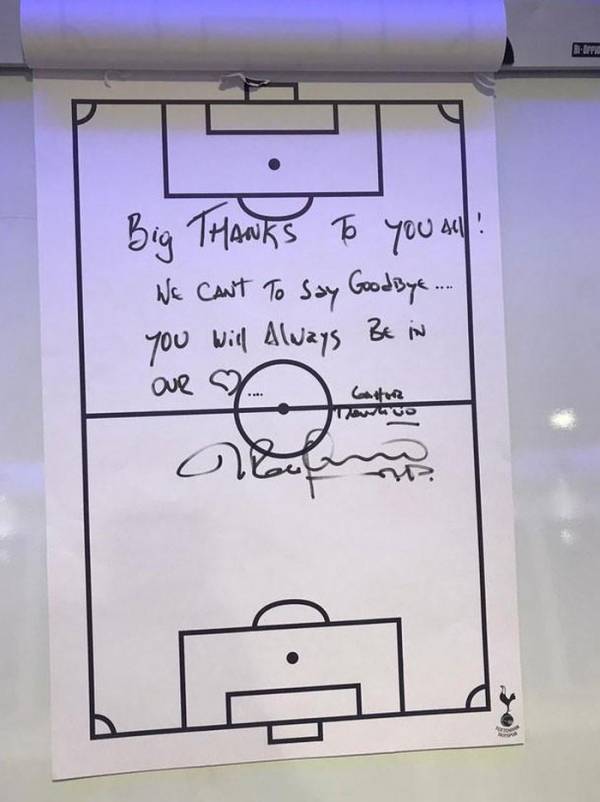 Big THANKS To YOU All!
WE CAN'T To SAy GoodBye....
YOU Will Always BE iN
OUR ♡....
TOTTENHAM
HOTSPUR